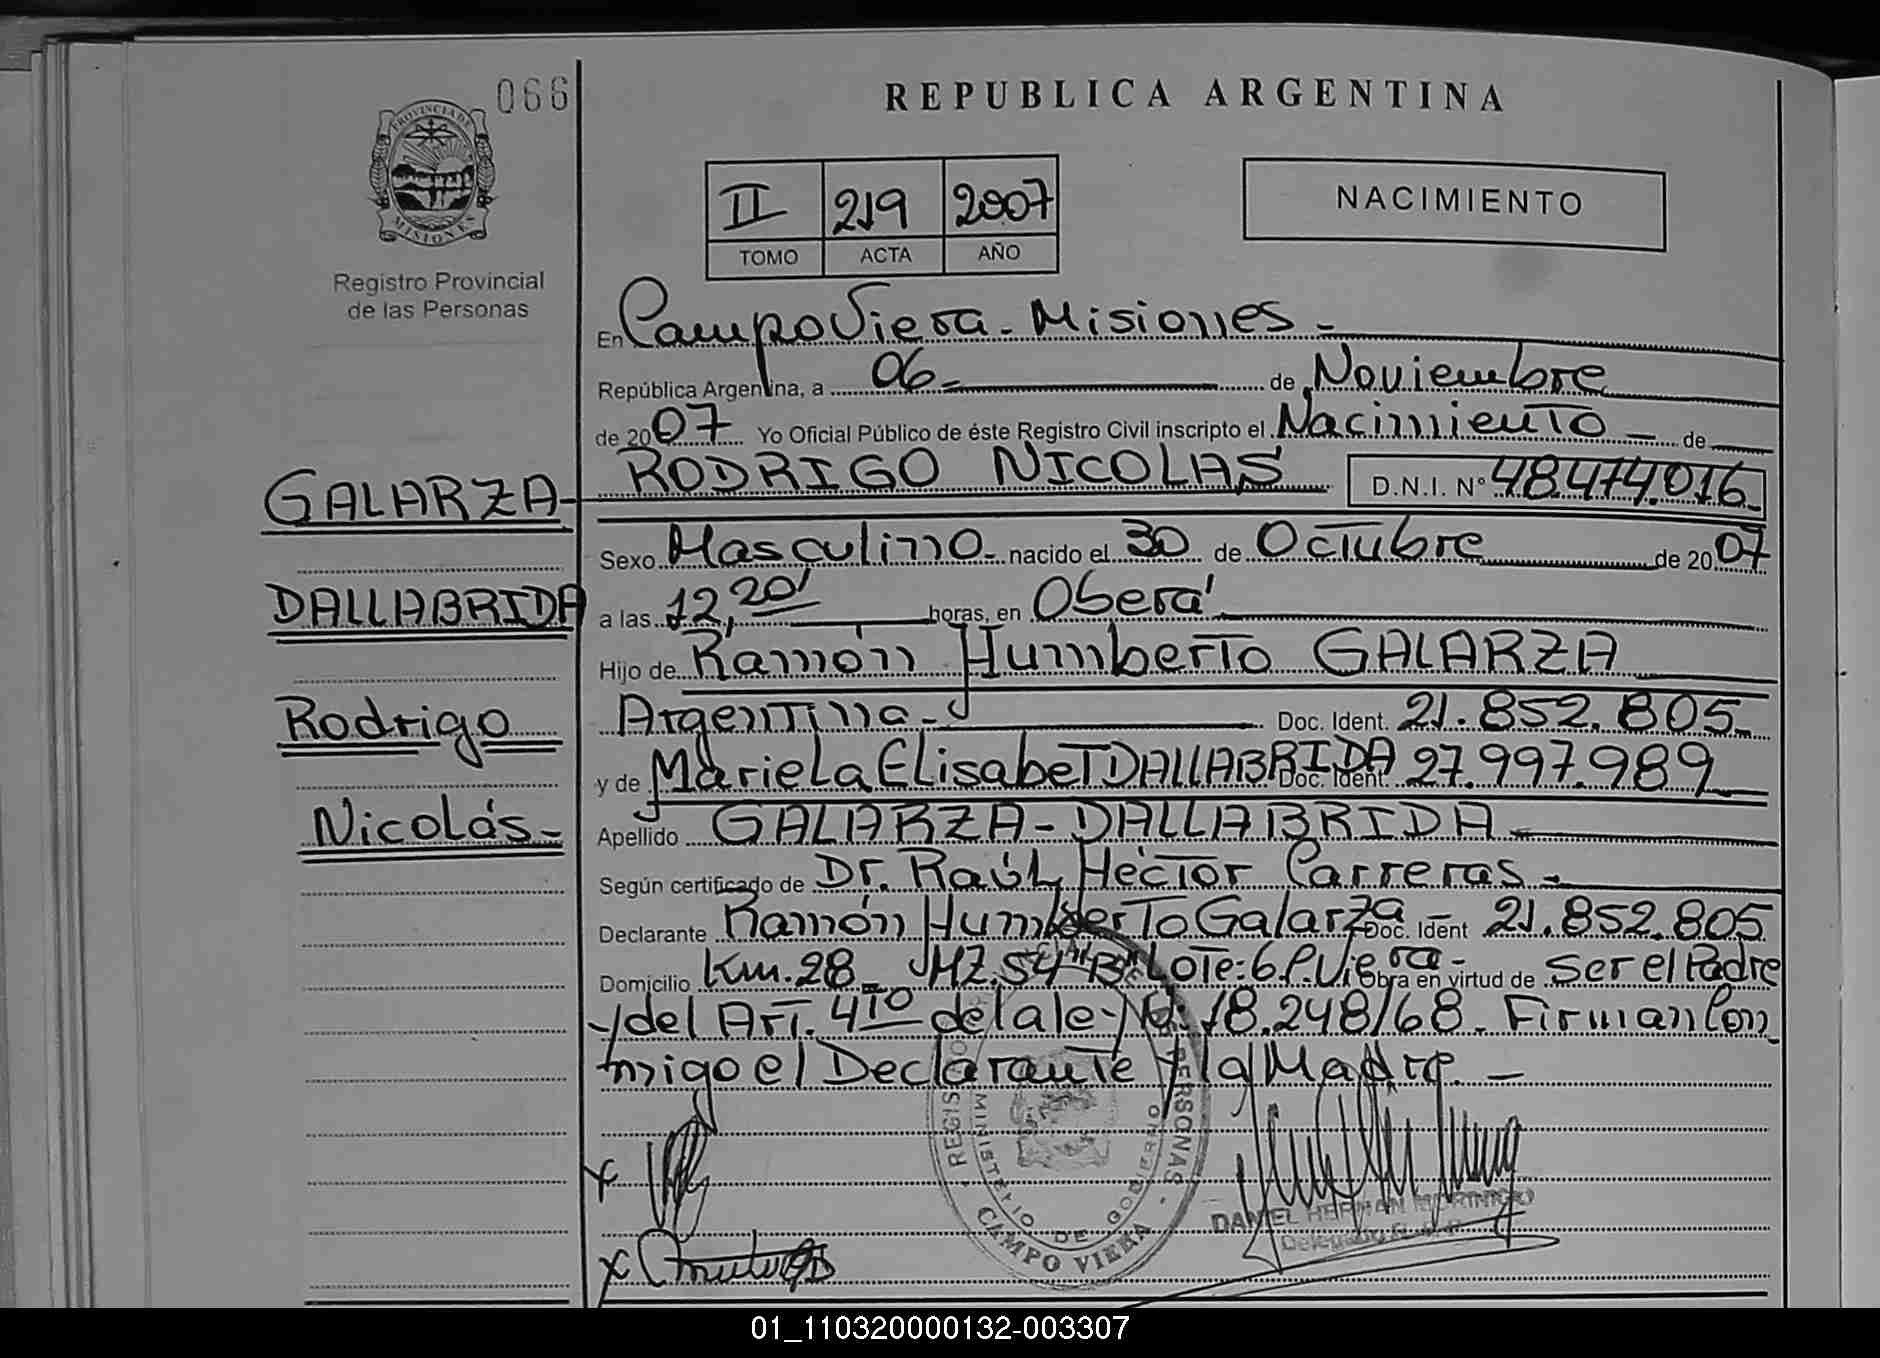 066
REPUBLICA ARGENTINA
PROVINCIA DE MISIONES
Registro Provincial
de las Personas
II 219 2007
TOMO ACTA AÑO
NACIMIENTO
En Campo Viera - Misiones -
República Argentina, a 06 - de Noviembre
de 2007 Yo Oficial Público de éste Registro Civil inscripto el Nacimiento - de
GALARZA - RODRIGO NICOLAS D.N.I. N° 48.474.016
Sexo Masculino - nacido el 30 de Octubre de 2007
DALLABRIDA
a las 12,20' horas, en Oberá
Hijo de Ramón Humberto GALARZA
Rodrigo
Argentina - Doc. Ident. 21.852.805
y de Mariela Elisabet DALLABRIDA Doc. Ident 27.997.989
Nicolás -
Apellido GALARZA - DALLABRIDA -
Según certificado de Dr. Raúl Héctor Carreras -
Declarante Ramón Humberto Galarza - Doc. Ident 21.852.805
Domicilio Km. 28 - MZ. 54 "B" Lote: 6 C. Viera - Obra en virtud de ser el Padre
y del Art. 4to de la ley No. 18.248/68. Firman Con
migo el Declarante y la Madre. -
REGISTRO PERSONAS
MINISTERIO DE GOBIERNO
CAMPO VIERA
x
DANIEL HERNAN MORINIGO
Delegado R.P.P.
x
01_110320000132-003307